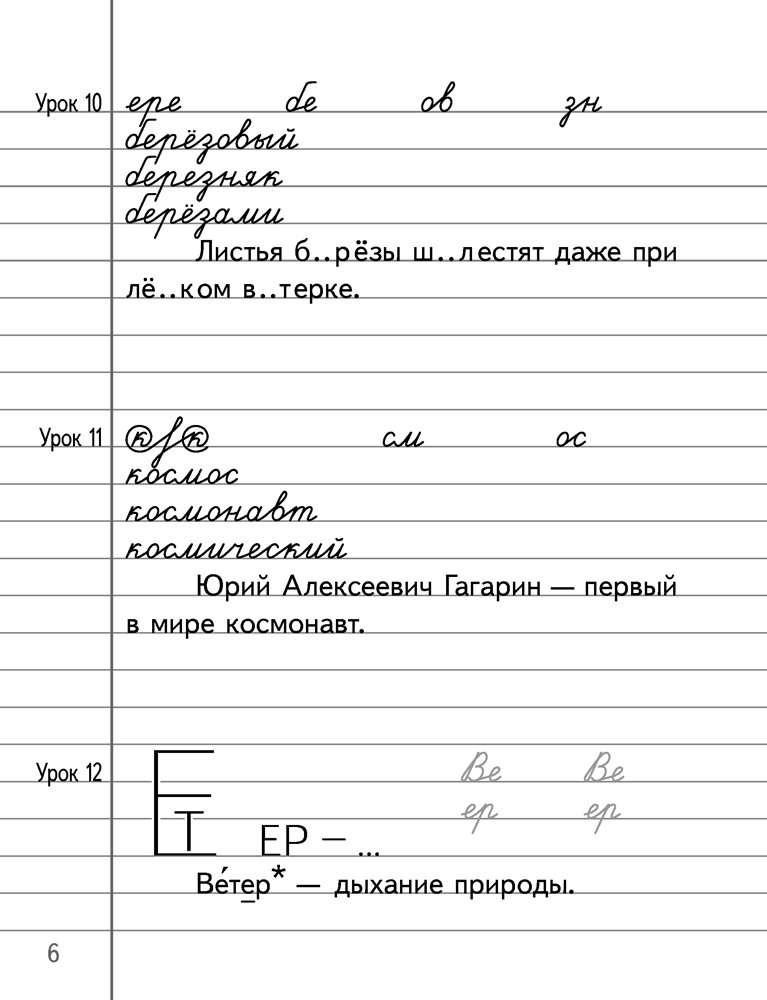 Урок 10 ере бе ов зн
берёзовый
березняк
берёзами
Листья б..рёзы ш..лестят даже при
лё..ком в..терке.
Урок 11 к/к см ос
космос
космонавт
космический
Юрий Алексеевич Гагарин — первый
в мире космонавт.
Урок 12 Е Ве Ве
ер ер
Т ЕР – ...
Ве́тер* — дыхание природы.
6